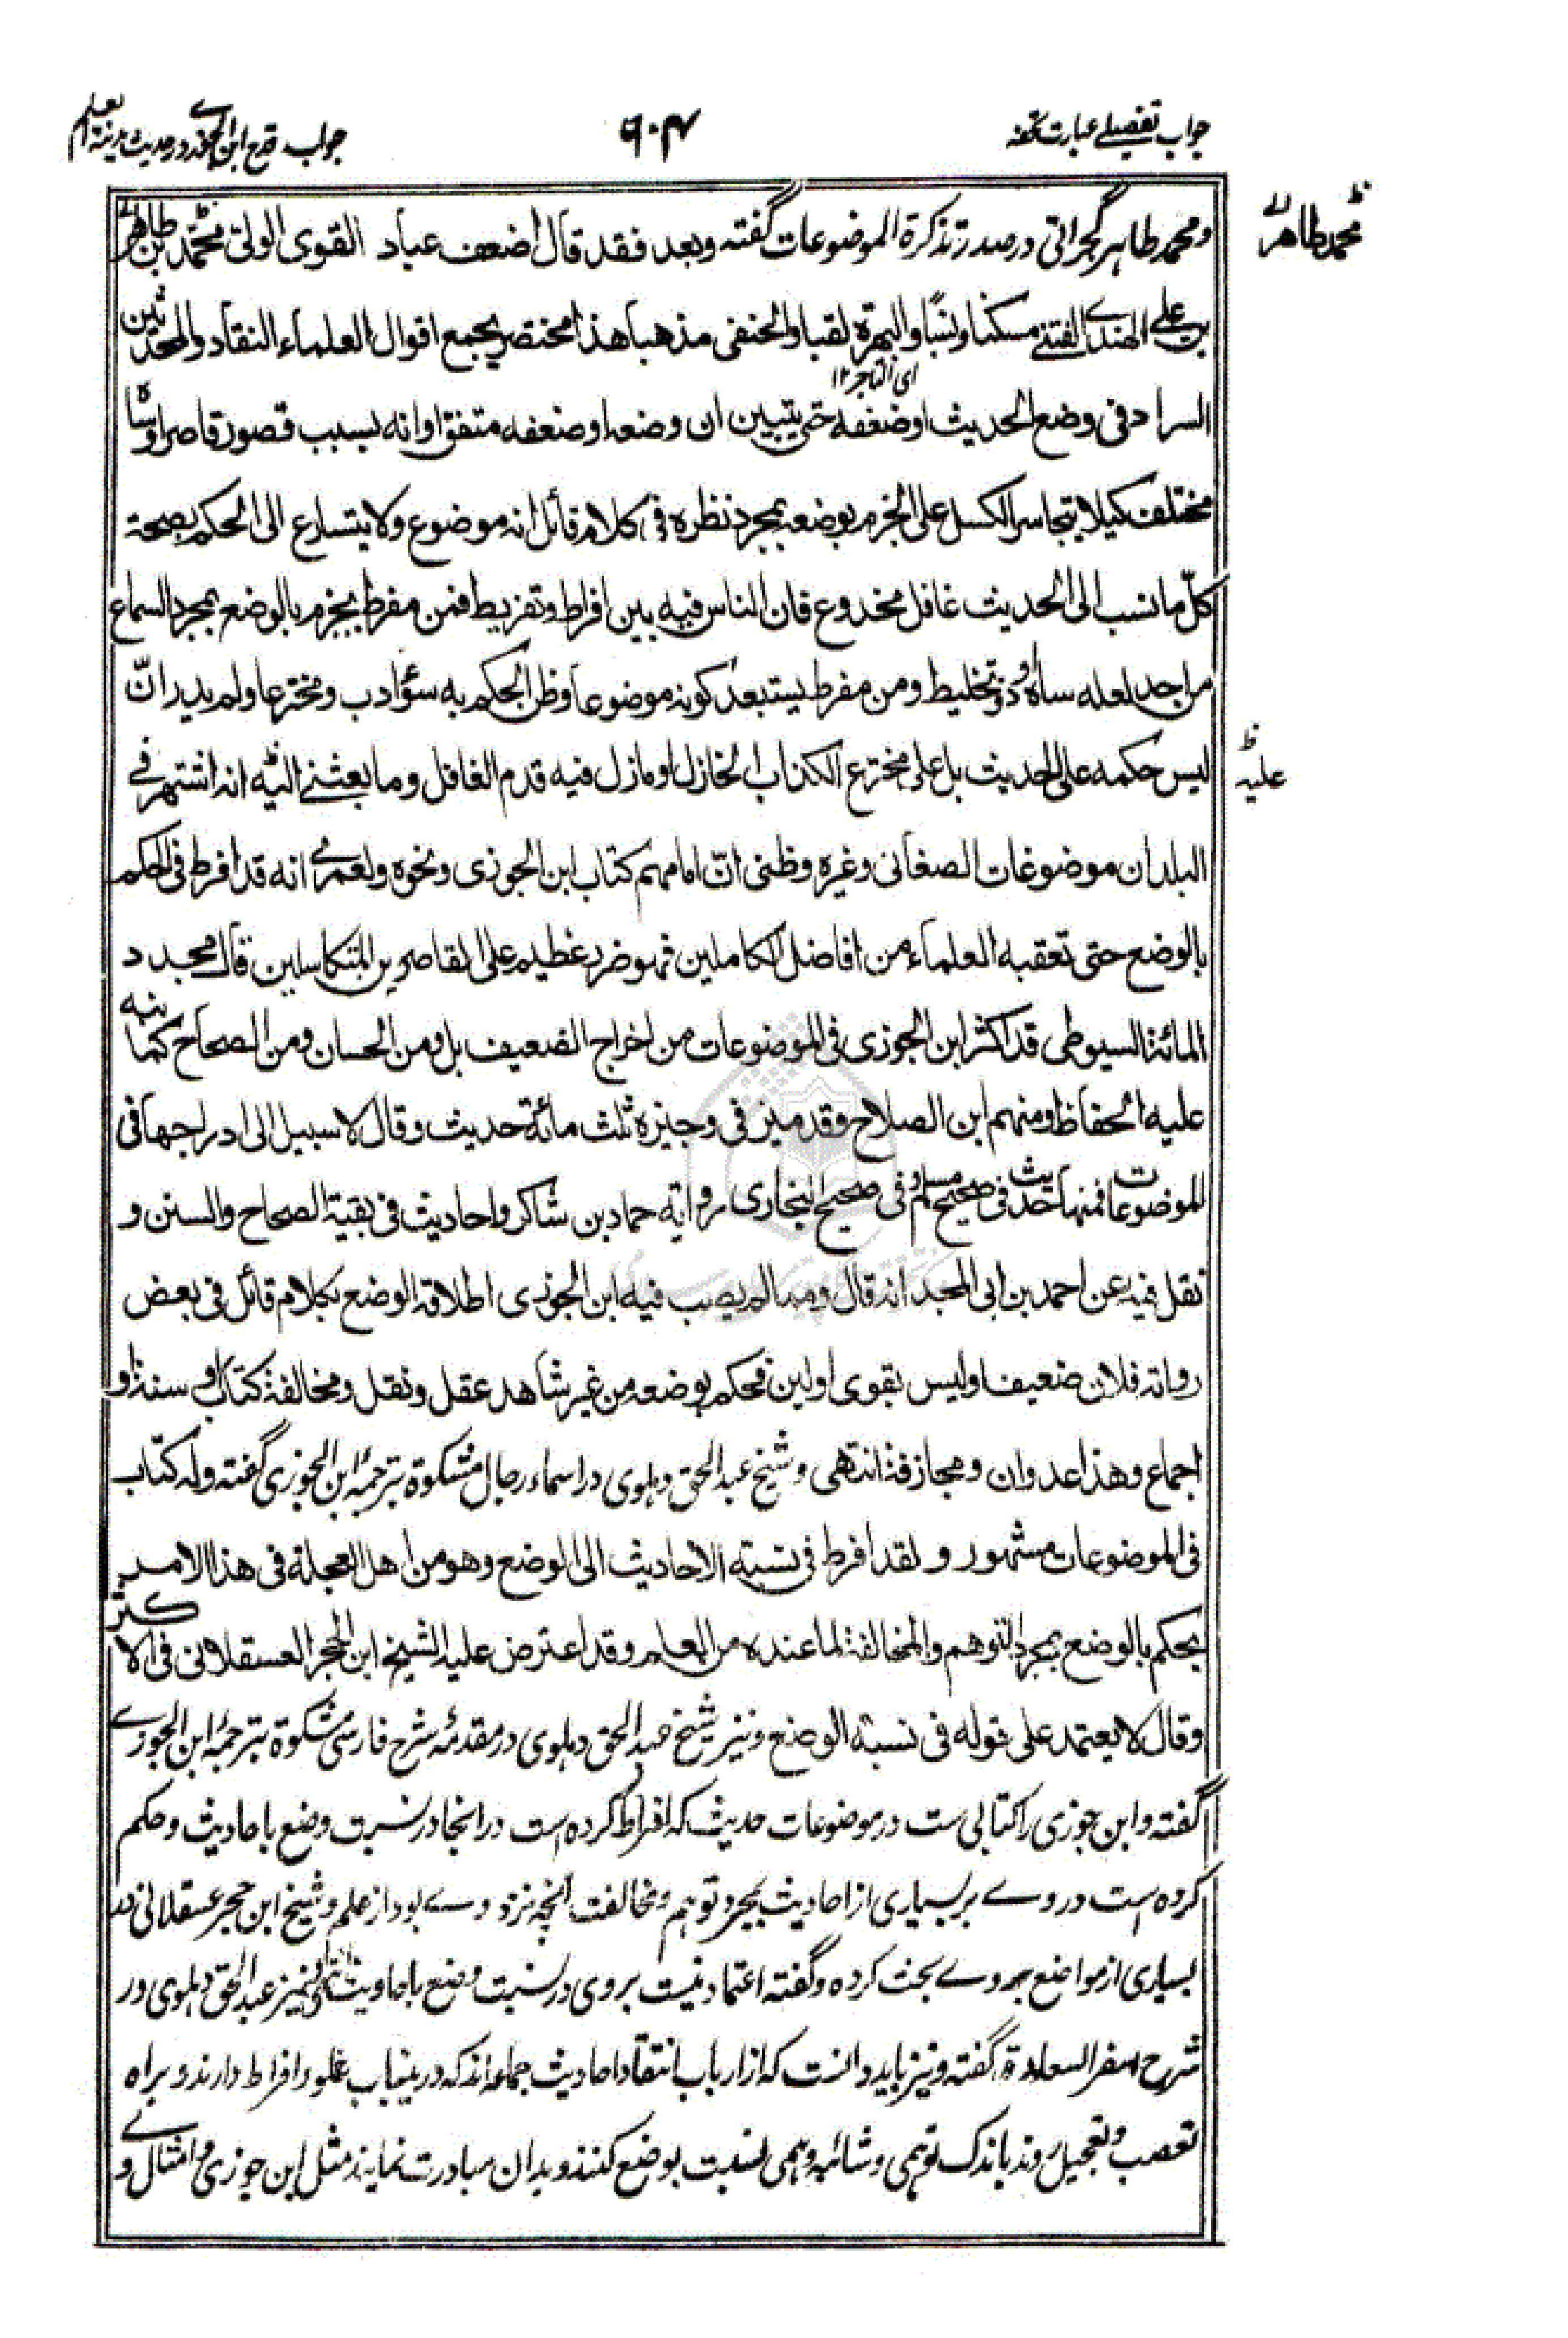 جواب تفصیلے عبارت تحفہ
۶۰۴
جواب قدح ابن الجوزے در حدیث مدینة العلم
ومحمد طاهر گجراتی در صدر تذکرة الموضوعات گفته وبعد فقد قال اضعف عباد القوی الولی محمد بن طاهر
محمد طاهر
بن علی الهندی الفتنے مسکنا ونسبًا والبهرة لقبا والحنفی مذهبا هذا مختصر یجمع اقوال العلماء النقاد والمحدثین
ای التاجر ۱۲
السراد فی وضع الحدیث اوضعفه حتی یتبین ان وضعه اوضعفه متفق اوانه بسبب قصور قاصر اوشاه
مختلف کیلا یتجاسر الکسل علی الجزم بوضعه بمجرد نظره فی کلام قائل انه موضوع ولا یتسارع الی الحکم بصحة
کلّ ما نسب الی الحدیث غافل مخدوع فان الناس فیه بین افراط وتفریط فمن مفرط یجزم بالوضع بمجرد السماع
من احد لعله ساهٍ او ذو تخلیط ومن مفرط یستبعد کونه موضوعا وظن الحکم به سؤ ادب ومخترعا ولم یدر انّ
لیس حکمه علی الحدیث بل علی مخترع الکذاب الخازل او مازل فیه قدم الغافل وما بعثنے الیه انه اشتهر فے
علیه
البلدان موضوعات الصغانی وغیره وظنی انّ امامهم کتاب ابن الجوزی ونحوه ولعمرے انه قد افرط فی الحکم
بالوضع حتی تعقبه العلماء من افاضل الکاملین فهو ضرر عظیم علی القاصرین المتکاسلین قال مجدد
المائة السیوطی قد اکثر ابن الجوزی فی الموضوعات من اخراج الضعیف بل ومن الحسان ومن الصحاح کما نبه
علیه الحفاظ ومنهم ابن الصلاح وقد میز فی وجیزه ثلث مائة حدیث وقال لا سبیل الی ادراجها فی
الموضوعات فمنها حدیث فی صحیح مسلم وفی صحیح البخاری بروایة حماد بن شاکر واحادیث فی بقیة الصحاح والسنن و
نقل فیه عن احمد بن ابی المجد انه قال ومما لم یصب فیه ابن الجوزی اطلاقه الوضع بکلام قائل فی بعض
رواته فلان ضعیف او لیس بقوی اولین فحکم بوضعه من غیر شاهد عقل ونقل ومخالفة کتاب او سنة او
اجماع وهذا عدوان ومجازفة انتهی وشیخ عبد الحق دهلوی در اسماء رجال مشکوة بترجمۀ ابن الجوزی گفته وله کتاب
فی الموضوعات مشهور ولقد افرط فی نسبته الاحادیث الی الوضع وهو من اهل العجلة فی هذا الامر
یحکم بالوضع بمجرد التوهم والمخالفة لما عنده من العلم وقد اعترض علیه الشیخ ابن الحجر العسقلانی فی الاکثر
وقال لا یعتمد علی قوله فی نسبة الوضع ونیز شیخ عبد الحق دهلوی در مقدمۀ شرح فارسی مشکوة بترجمۀ ابن الجوزے
گفته وابن جوزی را کتابی ست در موضوعات حدیث که افراط کرده است در انجا در نسبت وضع باحادیث وحکم
کرده است در وے بر بسیاری از احادیث بمجرد توهم ومخالفت آنچه نزد وے بود از علم وشیخ ابن حجر عسقلانی در
بسیاری از مواضع بر وے بحث کرده وگفته اعتماد نیست بر وی در نسبت وضع باحادیث انتهی ونیز عبد الحق دهلوی در
شرح سفر السعادة گفته ونیز باید دانست که از ارباب انتقاد احادیث جماعه اند که درین باب غلو وافراط دارند وبراه
تعصب وتعجیل روند باندک توهمی وشائبه وهمی نسبت بوضع کنند وبدان مبادرت نمایند مثل ابن جوزی وامثال وے و